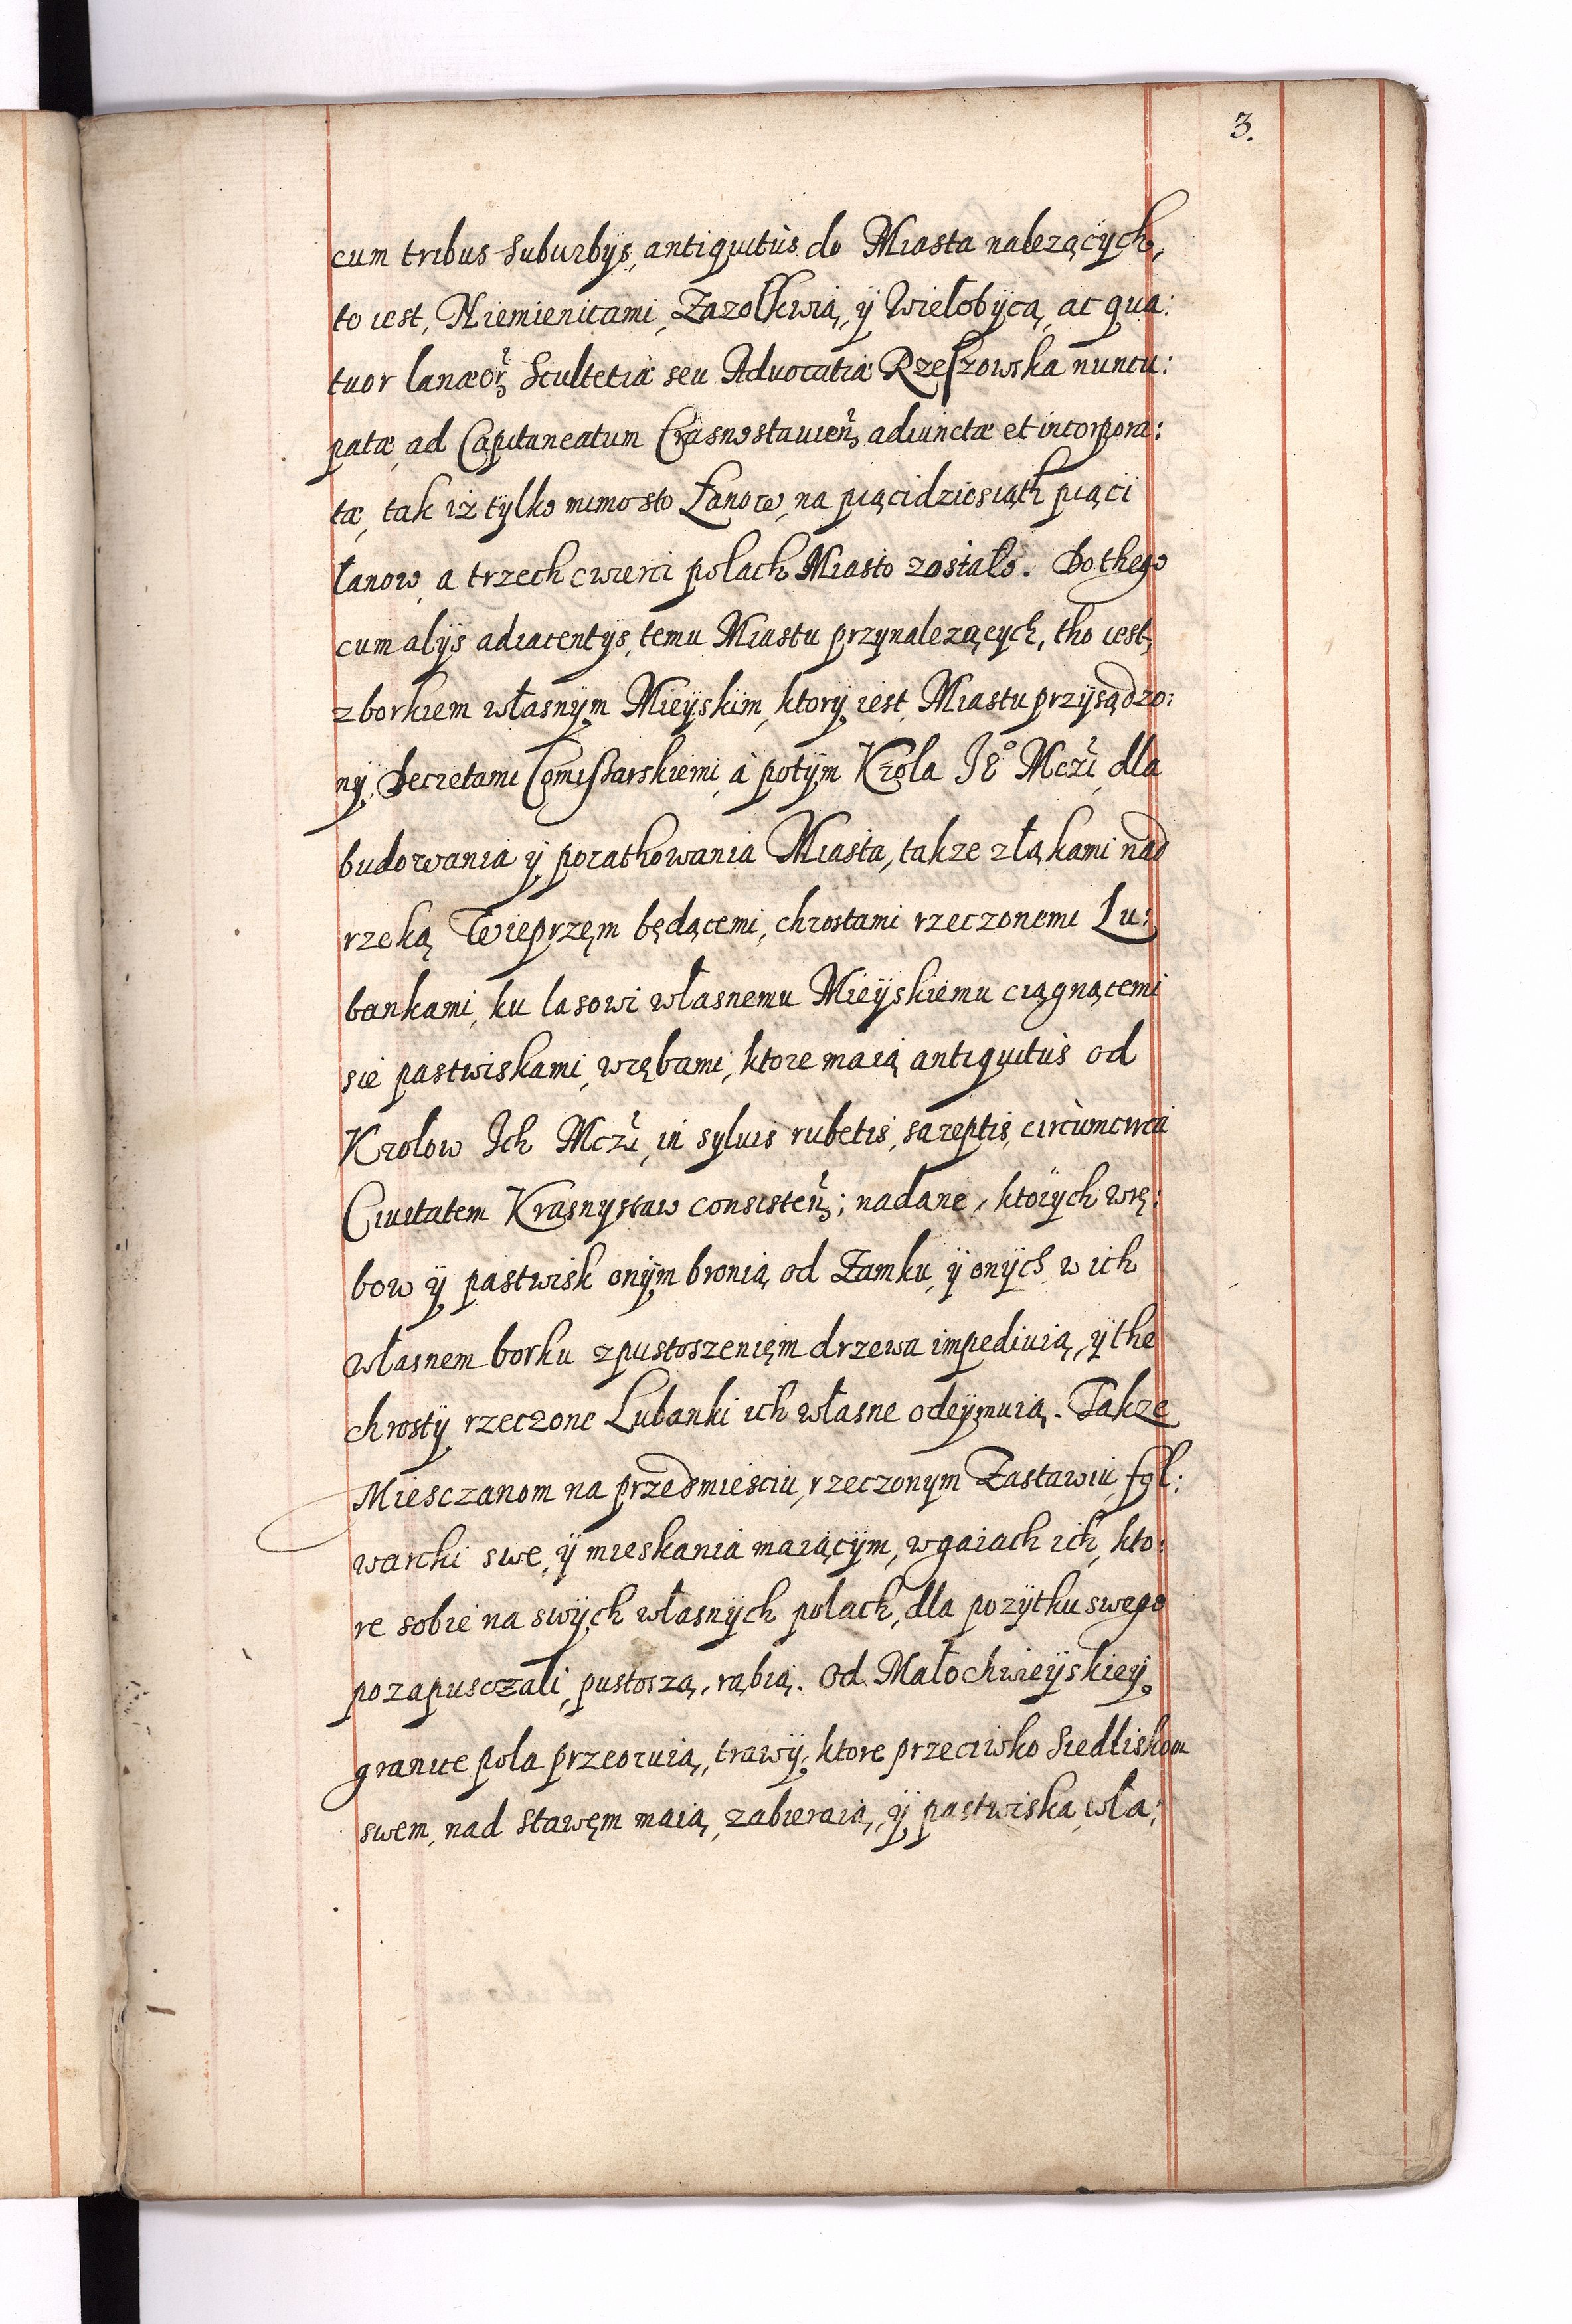 3.
cum tribus Suburbÿs, antiquitùs do Miasta nalezącÿch,
to iest, Niemienicami, Zazolkwią, ÿ Wielobÿcą, ac qua:
tuor lanæor̃ Scultetia seu Advocatia Rzeszowska nuncu:
patæ, ad Capitaneatum Crasnostavien̄, adiunctæ et incorpora:
tæ, tak iż tylko mimo sto Łanow, na piącidziesiąth piąci
lanow, a trzech cwierci polach Miasto zostało. Do thego
cum alÿs adiacentÿs, temu Miastu przynalezących, tho iest,
z borkiem własnÿm Mieÿskim, ktorÿ iest Miastu przÿsądzo:
nÿ, Decretami Comissarskiemi, à potÿm Krola Je͛° Mczi, dla
budowania ÿ porathowania Miasta, takze z łąkami nad
rzeką Wieprzęm będącemi, chrostami rzeczonemi Lu:
bankami, ku lasowi własnemu Mieÿskiemu ciągnącemi
sie pastwiskami, wrębami, ktore maią antiquitùs od
Krolow Ich Mczi, in sylvis rubetis, sareptis, circùmcirca
Civitatem Krasnystaw consisten̄; nadane, ktorÿch wrę:
bow ÿ pastwisk onÿm bronią od Zamku, ÿ onÿch w ich
własnem borku z pustoszenięm drzewa impediuią, ÿ the
chrostÿ rzeczone Lubanki ich własne odeÿmuią. Takze
Miesczanom na przedmieściu, rzeczonym Zastawiu, fol:
warki swe, ÿ mieskania maiącÿm, w gaiach ich, kto:
re sobie na swÿch własnÿch polach, dla pozÿtku swego
pozapusczali, pustoszą, rąbią. Od Małochwieÿskieÿ
granice pola przeoruią, trawÿ, ktore przeciwko Siedliskom
swem, nad stawęm maią, zabieraią, ÿ pastwiska wła: